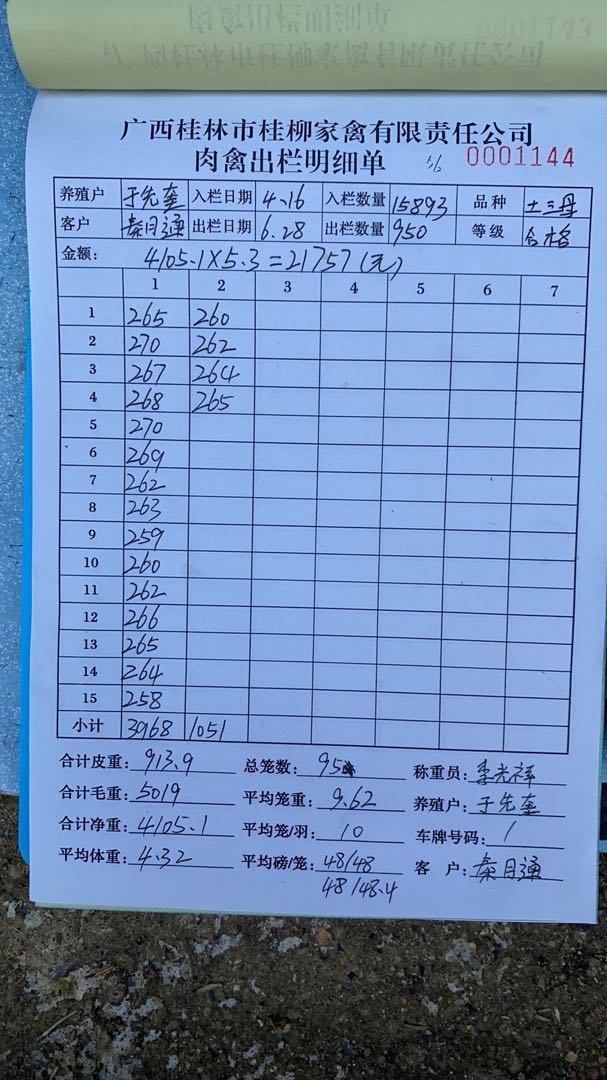 广西桂林市桂柳家禽有限责任公司
肉禽出栏明细单 0001144
养殖户 于先奎 入栏日期 4.16 入栏数量 15893 品种 土三母
客户 秦月通 出栏日期 6.28 出栏数量 950 等级 合格
金额： 4105.1×5.3=21757(元)
1 2 3 4 5 6 7
1 265 260
2 270 262
3 267 264
4 268 265
5 270
6 269
7 262
8 263
9 259
10 260
11 262
12 266
13 265
14 264
15 258
小计 3968 1051
合计皮重： 913.9 总笼数： 95 称重员： 李光祥
合计毛重： 5019 平均笼重： 9.62 养殖户： 于先奎
合计净重： 4105.1 平均笼/羽： 10 车牌号码： /
平均体重： 4.32 平均磅/笼： 48/48 客 户： 秦月通
48/48.4